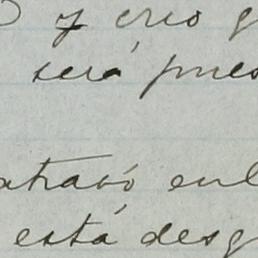 y creo
será pues
atrasó en
está desg